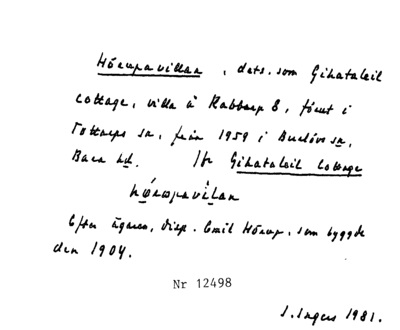 Hörupavillan, dets. som Gihataleil
Cottage, villa å Kabbarp 8, förut i
Tottarps sn, från 1959 i Burlövs sn,
Bara hd. Jfr Gihataleil Cottage
Efter ägaren, disp. Emil Hörup, som byggde
den 1904.
Nr 12498
J. Ingers 1981.